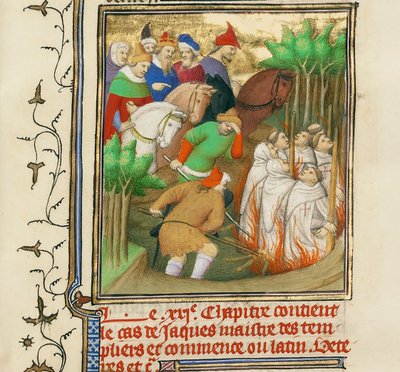 e. .xxie. Chapitre contient
le cas de Jaques maistre des tem
pliers et commence ou latin.
res et c